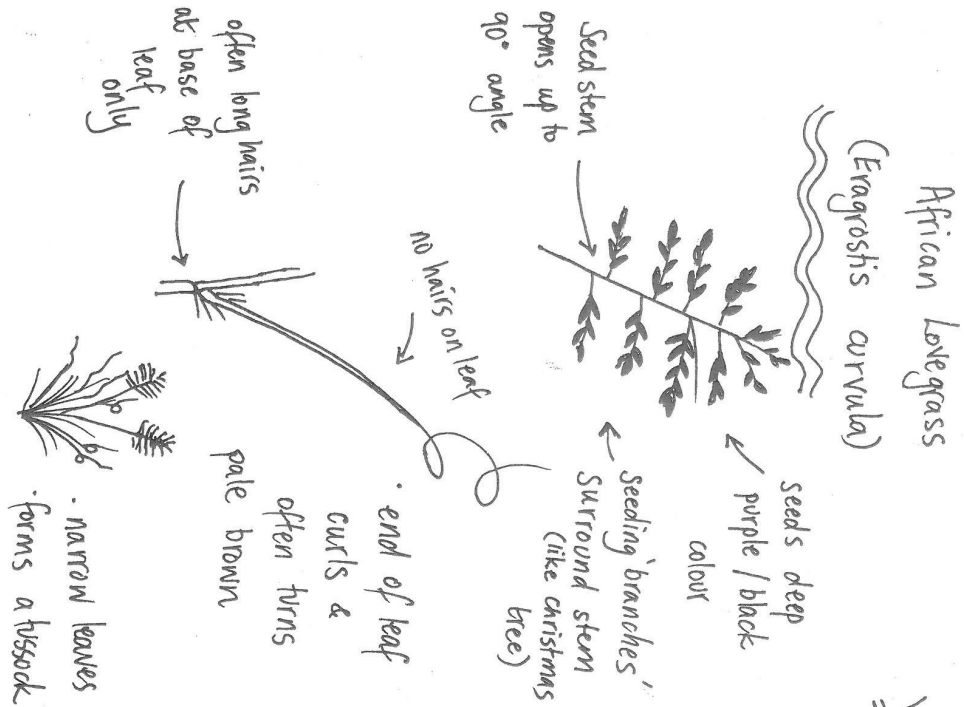 African Lovegrass
(Eragrostis curvula)
Seed stem
opens up to
90° angle
seeds deep
purple / black
colour
seeding 'branches'
surround stem
(like christmas
tree)
no hairs on leaf
often long hairs
at base of
leaf
only
· end of leaf
curls &
often turns
pale brown
· narrow leaves
· forms a tussock